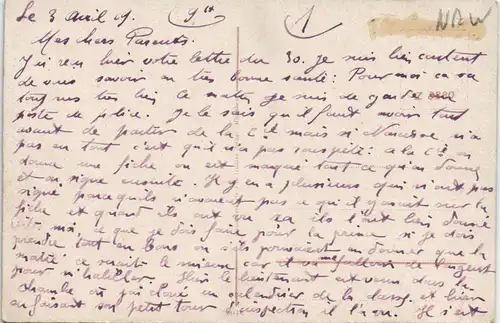 Le 3 Avril 19. 9 ct 1 NBW
Mes chers Parents.
J'ai reçu hier votre lettre du 30. Je suis bien content
de vous savoir en très bonne santé. Pour moi ça va
toujours très bien. Ce matin je suis de garde au
poste de police. Je le sais qu'il faut avoir tout
avant de partir de la Cie mais si n'a
pas eu tout c'est qu'il n'a pas : à la Cie on
donne une fiche où est marqué tout ce qu'on donne
et on signe ensuite. Il y en a plusieurs qui n'ont pas
signé parce qu'ils n'avaient pas ce qu'il y avait sur la
fiche et quand ils ont vu ça ils l'ont bien donné
moi, ce que je dois faire pour la prime si je dois
prendre tout en bons ou s'ils pourraient en donner que la
moitié ce serait le mieux car il me fallait de l'argent
pour m'habiller. Hier le lieutenant est venu dans la
chambre où j'ai un calendrier de la classe, et hier
en faisant son petit tour d'inspection il l'a vu. Il s'est